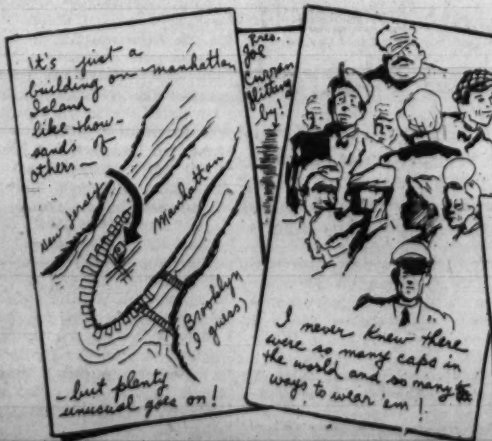 It's just a
building on manhattan
Island
like thou-
sands of
others —
New Jersey
Manhattan
Brooklyn
(I guess)
- but plenty
unusual goes on!
Pres.
Joe
Curran
flitting
by!
I never knew there
were so many caps in
the world and so many
ways to wear 'em!